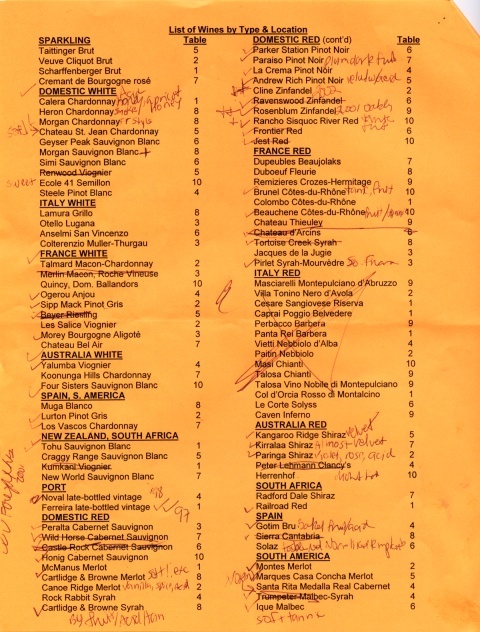 List of Wines by Type & Location
SPARKLING Table
Taittinger Brut 5
Veuve Cliquot Brut 2
Scharffenberger Brut 1
Cremant de Bourgogne rosé 7
DOMESTIC WHITE
Calera Chardonnay 1
Heron Chardonnay 8
Morgan Chardonnay 8
Chateau St. Jean Chardonnay 5
Geyser Peak Sauvignon Blanc 6
Morgan Sauvignon Blanc 6
Simi Sauvignon Blanc 6
Renwood Viognier 5
sweet Ecole 41 Semillon 10
Steele Pinot Blanc 4
ITALY WHITE
Lamura Grillo 8
Otello Lugana 3
Anselmi San Vincenzo 6
Colterenzio Muller-Thurgau 3
FRANCE WHITE
Talmard Macon-Chardonnay 2
Merlin Macon, Roche Vineuse 3
Quincy, Dom. Ballandors 10
Ogerou Anjou 4
Sipp Mack Pinot Gris 2
Beyer Riesling 5
Les Salice Viognier 2
Morey Bourgogne Aligoté 3
Chateau Bel Air 7
AUSTRALIA WHITE
Yalumba Viognier 4
Koonunga Hills Chardonnay 7
Four Sisters Sauvignon Blanc 10
SPAIN, S. AMERICA
Muga Blanco 8
Lurton Pinot Gris 2
Los Vascos Chardonnay 7
NEW ZEALAND, SOUTH AFRICA
Tohu Sauvignon Blanc 1
Craggy Range Sauvignon Blanc 5
Kumkani Viognier 1
New World Sauvignon Blanc 7
PORT
Noval late-bottled vintage '98 4
Ferreira late-bottled vintage 1 '97
DOMESTIC RED
Peralta Cabernet Sauvignon 3
Wild Horse Cabernet Sauvignon 7
Castle Rock Cabernet Sauvignon 6
Honig Cabernet Sauvignon 10
McManus Merlot 1
Cartlidge & Browne Merlot 8
Canoe Ridge Merlot 2
Rock Rabbit Syrah 4
Cartlidge & Browne Syrah 8
DOMESTIC RED (cont'd) Table
Parker Station Pinot Noir 6
Paraiso Pinot Noir 7
La Crema Pinot Noir 4
Andrew Rich Pinot Noir 5
Cline Zinfandel 2
Ravenswood Zinfandel 6
Rosenblum Zinfandel 9
Rancho Sisquoc River Red 10
Frontier Red 6
Jest Red 10
FRANCE RED
Dupeubles Beaujolaks 7
Duboeuf Fleurie 8
Remizieres Crozes-Hermitage 9
Brunel Côtes-du-Rhône 10
Colombo Côtes-du-Rhône 1
Beauchene Côtes-du-Rhône 10
Chateau Thieuley 9
Chateau d'Arcins 6
Tortoise Creek Syrah 8
Jacques de la Jugie 3
Pirlet Syrah-Mourvèdre 3
ITALY RED
Masciarelli Montepulciano d'Abruzzo 9
Villa Tonino Nero d'Avola 2
Cesare Sangiovese Riserva 1
Caprai Poggio Belvedere 1
Perbacco Barbera 9
Panta Rei Barbera 1
Vietti Nebbiolo d'Alba 4
Paitin Nebbiolo 2
Masi Chianti 10
Talosa Chianti 9
Talosa Vino Noble di Montepulciano 9
Col d'Orcia Rosso di Montalcino 1
Le Corte Solyss 6
Caven Inferno 9
AUSTRALIA RED
Kangaroo Ridge Shiraz velvet 5
Kirralaa Shiraz almost velvet 7
Paringa Shiraz violet, rose, acid 2
Peter Lehmann Clancy's 4
Herrenhof 10
SOUTH AFRICA
Radford Dale Shiraz 7
Railroad Red 1
SPAIN
Gotim Bru 4
Sierra Cantabria 8
Solaz 6
SOUTH AMERICA
Montes Merlot 2
Marques Casa Concha Merlot 5
Santa Rita Medalla Real Cabernet 4
Trumpeter Malbec-Syrah 4
Ique Malbec 6